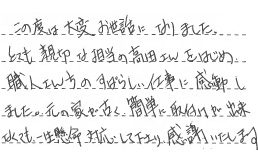 この度は大変お世話になりました。
とても親切な担当の高田さんをはじめ、
職人さん方のすばらしい仕事に感動し
ました。元の家が古く簡単に取付けが出来
なくても一生懸命対応して下さり感謝いたします